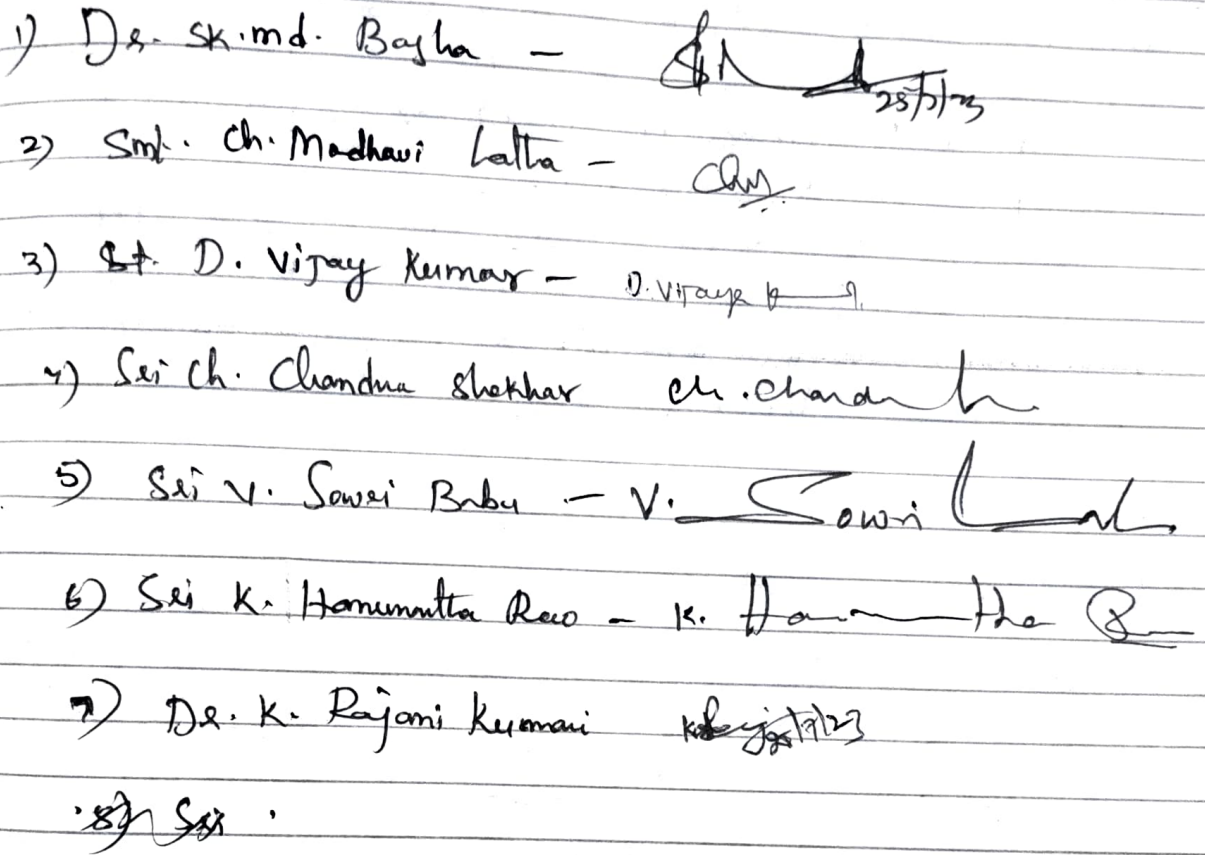 1) Dr. SK. md. Basha - 25/7/23
2) Smt. Ch. Madhavi Latha -
3) D. Vijay Kumar - D. Vijaya K
4) Sri Ch. Chandra Shekhar Ch. Chand
5) Sri V. Sowri Babu - V. Sowri
6) Sri K. Hanumantha Rao - K. Ha tha R
7) Dr. K. Rajani Kumari 25/7/23
8) Sri .